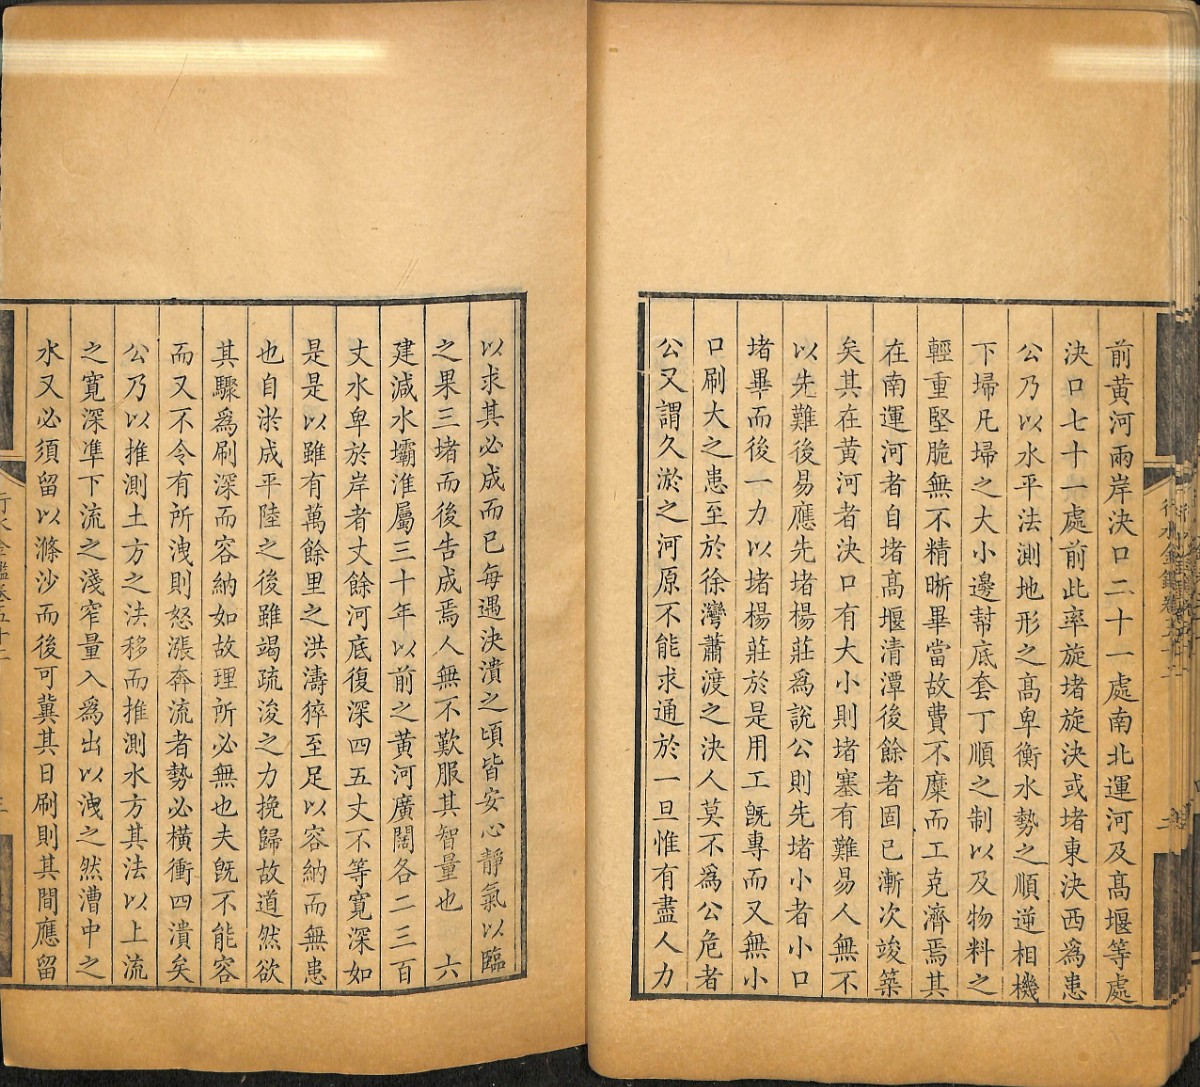 前黄河兩岸決口二十一處南北運河及髙堰等處
決口七十一處前此率旋堵旋決或堵東決西爲患
公乃以水平法測地形之髙卑衡水勢之順逆相機
下埽凡埽之大小邊幇底套丁順之制以及物料之
輕重堅脆無不精晰畢當故費不糜而工克濟焉其
在南運河者自堵髙堰清潭後餘者固已漸次竣築
矣其在黄河者決口有大小則堵塞有難易人無不
以先難後易應先堵楊莊爲說公則先堵小者小口
堵畢而後一力以堵楊莊於是用工旣專而又無小
口刷大之患至於徐灣蕭渡之決人莫不爲公危者
公又謂久淤之河原不能求通於一旦惟有盡人力
以求其必成而已每遇決潰之頃皆安心靜氣以臨
之果三堵而後告成焉人無不歎服其智量也　六
建減水壩淮屬三十年以前之黄河廣闊各二三百
丈水卑於岸者丈餘河底復深四五丈不等寛深如
是是以雖有萬餘里之洪濤猝至足以容納而無患
也自淤成平陸之後雖竭疏浚之力挽歸故道然欲
其驟爲刷深而容納如故理所必無也夫旣不能容
而又不令有所洩則怒漲奔流者勢必橫衝四潰矣
公乃以推測土方之法移而推測水方其法以上流
之寛深凖下流之淺窄量入爲出以洩之然漕中之
水又必須留以滌沙而後可冀其日刷則其間應留
行水金鑑卷五十二